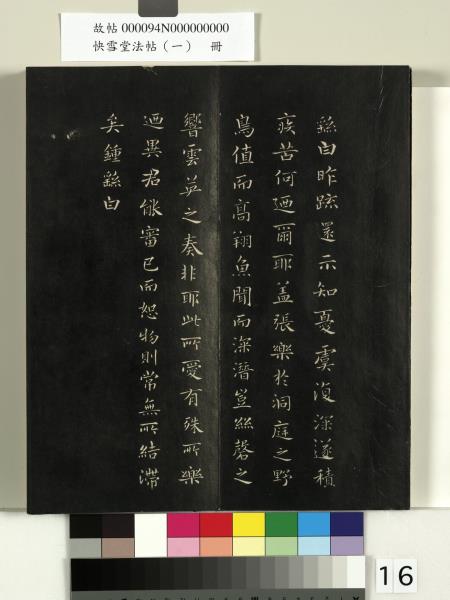 故帖 000094N000000000
快雪堂法帖（一） 冊
繇白昨疏還示知憂虞復深遂積
疾苦何迺爾耶盖張樂於洞庭之野
鳥值而高翔魚聞而深潛豈絲磬之
響雲英之奏非耶此所愛有殊所樂
迺異君能審己而恕物則常無所結滯
矣鍾繇白
16